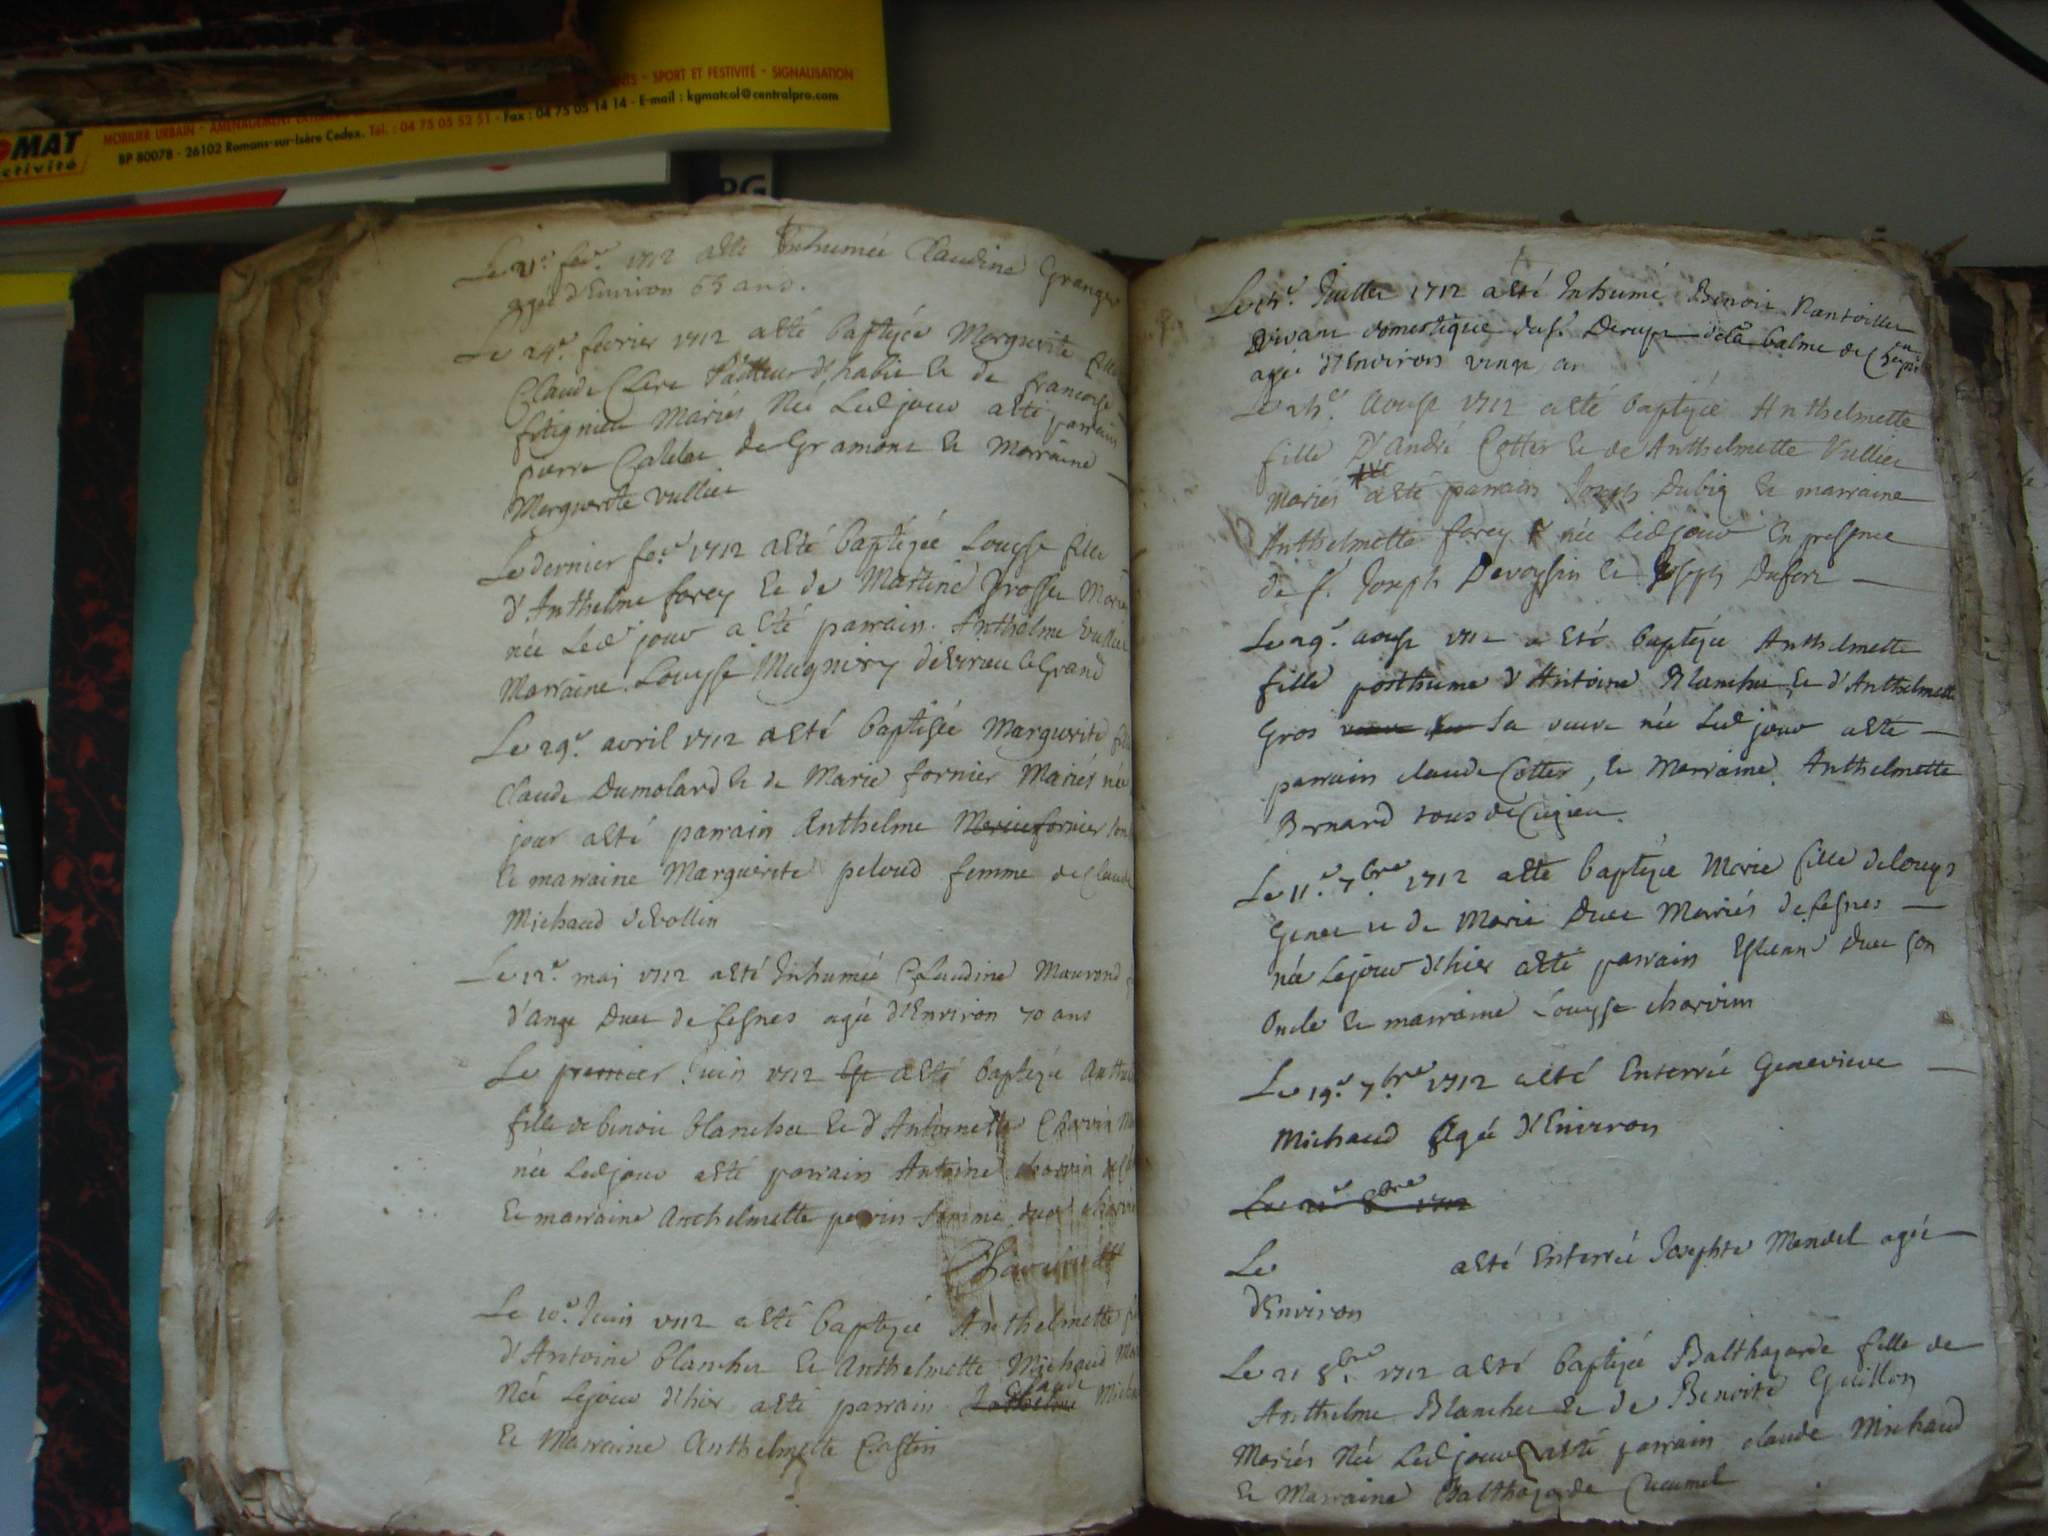 MOBILIER URBAIN - AMENAGEMENT - SPORT ET FESTIVITÉ - SIGNALISATION
BP 80078 - 26102 Romans-sur-Isère Cedex. Tél. : 04 75 05 52 51 - Fax : 04 75 05 14 14 - E-mail : kgmatcol@centralpro.com
MAT
ctivité
PG
Le 21e fevr 1712 a esté Inhumée Claudine Granger
agée d'Environ 63 ans.
Le 24e fevrier 1712 a esté baptizée Marguerite fille
Claude Clere d'habit & de francoise
mariés Née Led jour a esté parrain
pierre de Gramont & Marraine
Marguerite vullier
Le dernier fevr 1712 a esté baptizée Louyse fille
d'Anthelme forey & de Martine Prosse Mariés
née Led jour a esté parrain. Anthelme Vullier
Marraine Louysse Mugniery de Virieu le Grand
Le 29e avril 1712 a esté baptisée Marguerite
Claude Dumolard & de Marie fornier Mariés née
jour a esté parrain Anthelme Marie fornier son
& marraine Marguerite peloud femme de Claude
Michaud de Vollin
Le 12e mai 1712 a esté Inhumée Claudine Mauvond
d'ange Duc de sesnes agée d'Environ 70 ans
Le premier Juin 1712 a esté baptizée
fille de benoit blancher & d'Antoinette Charvin
née Led jour a esté parrain Antoine charvin
& marraine Anthelmette perrin femme
Le 10e Juin 1712 a esté baptizée Anthelmette
d'Antoine blancher & Anthelmette Michaud
Née Le jour d'hier a esté parrain Anthelme Claude
& Marraine Anthelmette Castin
Le Juillet 1712 a esté Inhumé Benoit Pantoillier
vivant domestique du sr de la balme de
agée d'Environ vingt an
Le aoust 1712 a esté baptizée Anthelmette
fille D'andré Cotter & de Anthelmette Vullier
Mariés a esté parrain Joseph Dubiez & marraine
Anthelmette forey née Led jour En presence
de sr Joseph Devoyssin & Joseph Dufort
Le 29e aoust 1712 a esté baptizée Anthelmette
fille posthume d'Antoine Blancher & d'Anthelmette
Gros sa veuve née Led jour a esté
parrain claude Cotter, & Marraine Anthelmette
Bernard tous de Cugieu
Le 11e 7bre 1712 a esté baptizée Marie fille de Louys
Genet & de Marie Duc Mariés de sesnes
née Le jour d'hier a esté parrain Estienne Duc son
Oncle & marraine Louysse charvin
Le 19e 7bre 1712 a esté Enterrée Genevieve
Michaud Agée d'Environ
Le 21e 8bre 1712
Le a esté Enterrée Josephte Mendel agée
d'Environ
Le 21 8bre 1712 a esté baptizée Balthazarde fille de
Anthelme Blancher & de Benoite Guillon
Mariés Née Led jour a esté parrain claude Michaud
& Marraine Balthazarde Cucumel